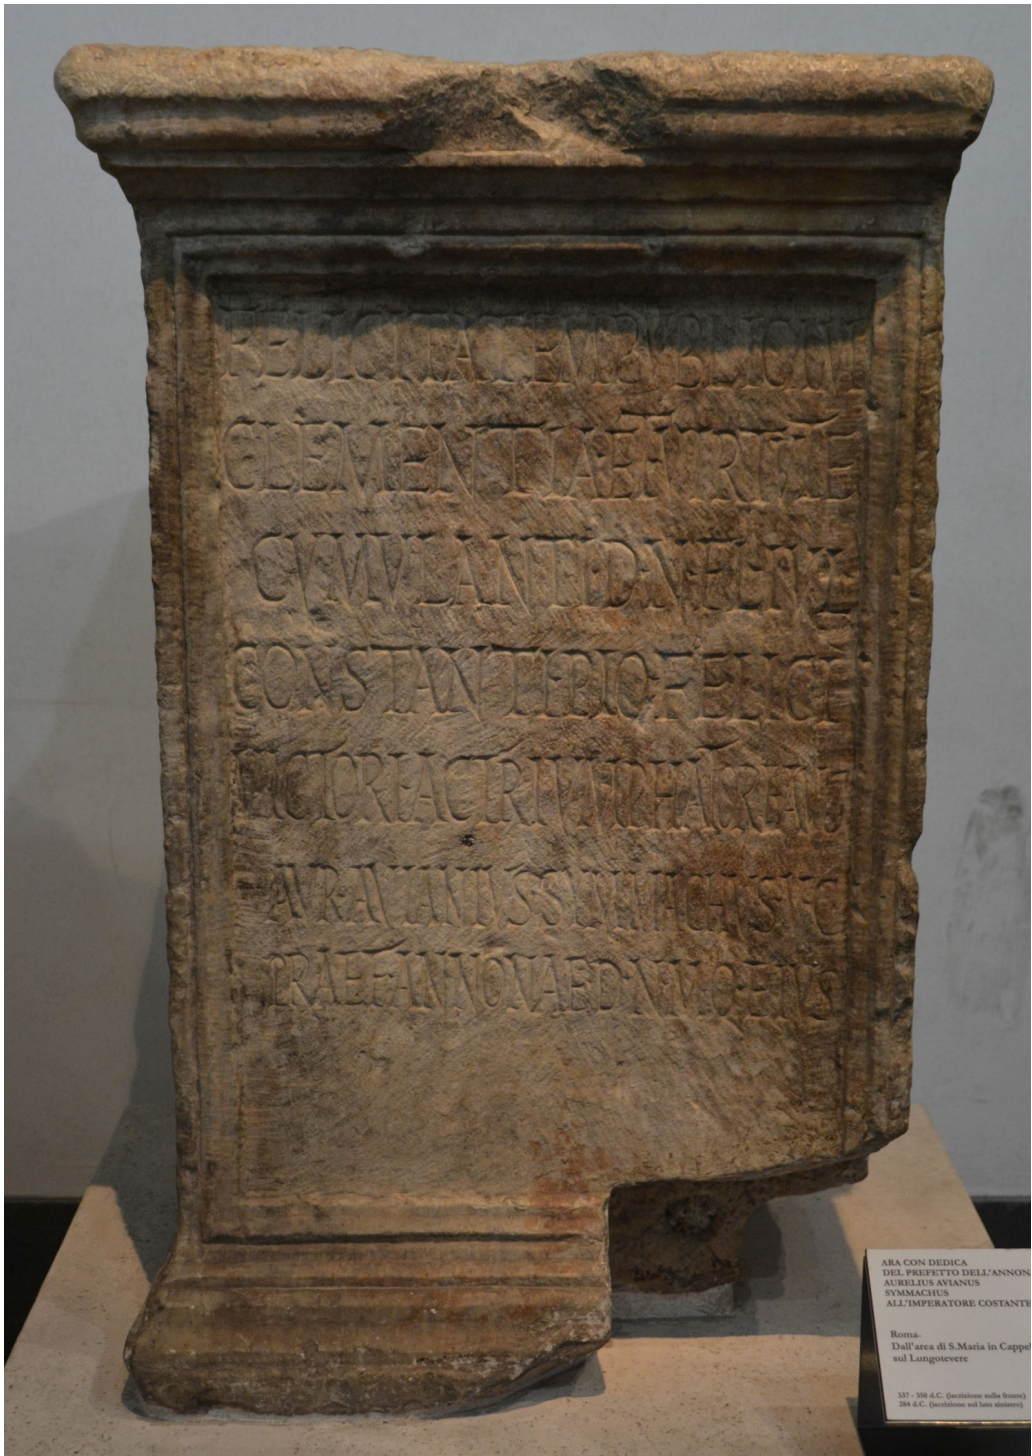 FELICITATEM PVBLICAM
CLEMENTIA ET VIRTVTE
CVMVLANTI D·N·FL·IVL
CONSTANTI PIO FELICI
VICTORI AC TRIVMFATORI AVG
AVR·AVIANIVS SYMMACHVS V·C
PRAEF ANNONAE D·N·M·Q·EIVS
ARA CON DEDICA
DEL PREFETTO DELL'ANNON
AURELIUS AVIANUS
SYMMACHUS
ALL'IMPERATORE COSTANTE
Roma.
Dall'area di S.Maria in Cappel
sul Lungotevere
337 - 350 d.C. (iscrizione sulla fronte)
284 d.C. (iscrizione sul lato sinistro)